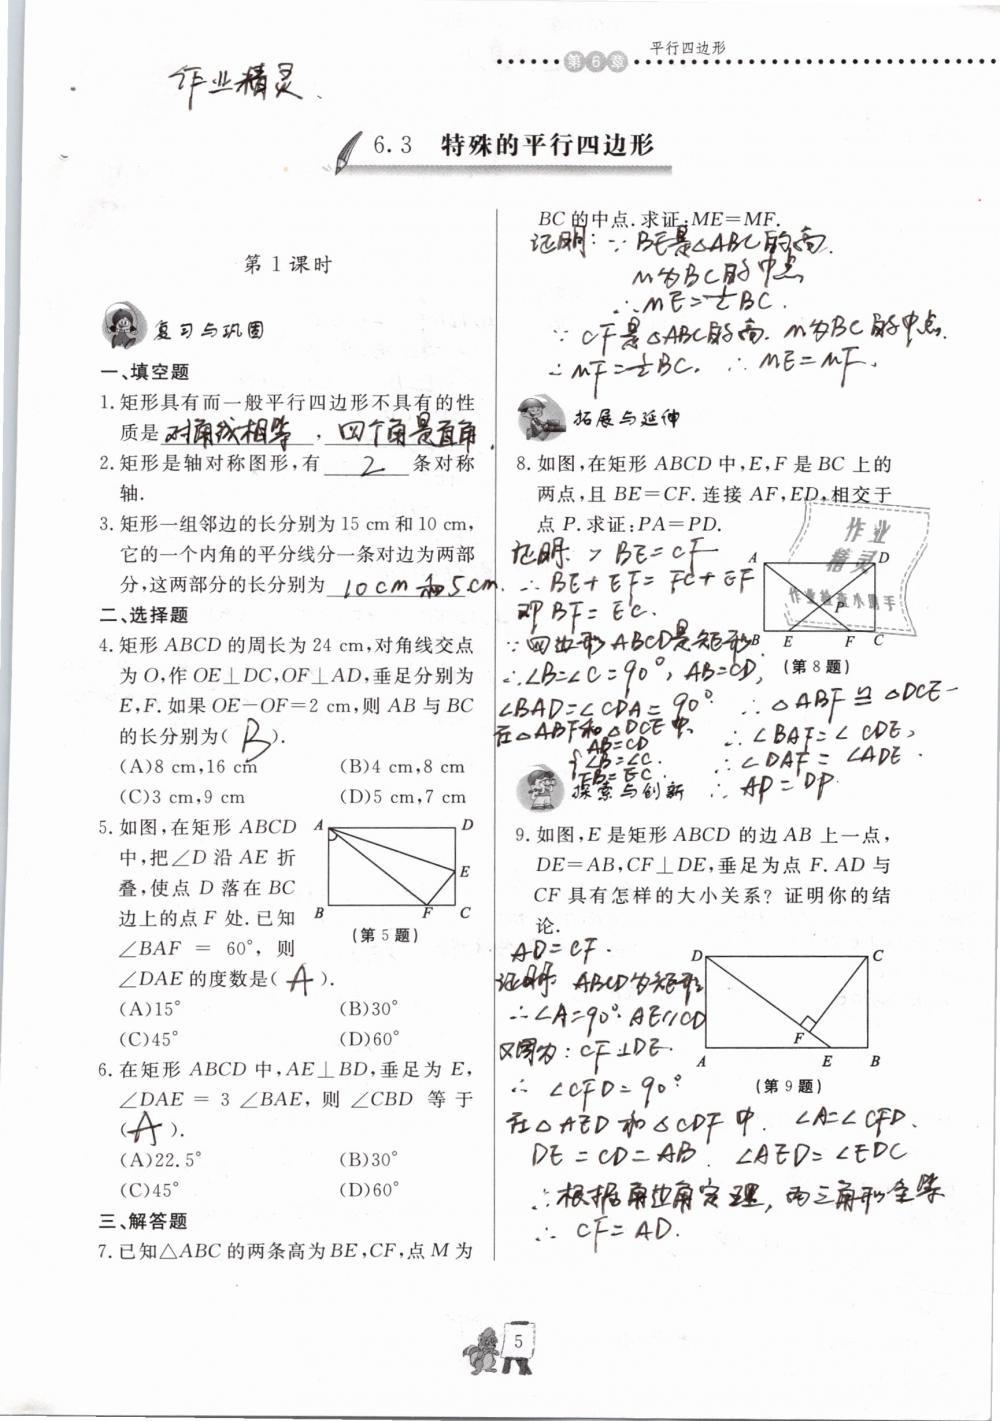 平行四边形
第6章
作业精灵
6.3 特殊的平行四边形
第1课时
复习与巩固
一、填空题
1.矩形具有而一般平行四边形不具有的性
质是 对角线相等 , 四个角是直角 .
2.矩形是轴对称图形,有 2 条对称
轴.
3.矩形一组邻边的长分别为15 cm和10 cm,
它的一个内角的平分线分一条对边为两部
分,这两部分的长分别为 10cm和5cm.
二、选择题
4.矩形ABCD的周长为24 cm,对角线交点
为O,作OE⊥DC,OF⊥AD,垂足分别为
E,F.如果OE-OF=2 cm,则AB与BC
的长分别为( B ).
(A)8 cm,16 cm (B)4 cm,8 cm
(C)3 cm,9 cm (D)5 cm,7 cm
5.如图,在矩形ABCD
中,把∠D沿AE折
叠,使点D落在BC
边上的点F处.已知
∠BAF = 60°, 则
∠DAE的度数是( A ).
(A)15° (B)30°
(C)45° (D)60°
A D
E
B F C
(第5题)
6.在矩形ABCD中,AE⊥BD,垂足为E,
∠DAE = 3∠BAE, 则∠CBD 等于
( A ).
(A)22.5° (B)30°
(C)45° (D)60°
三、解答题
7.已知△ABC的两条高为BE,CF,点M为
BC的中点.求证:ME=MF.
证明:∵BE是△ABC的高.
M为BC的中点
∴ME=½BC.
∵CF是△ABC的高.M为BC的中点.
∴MF=½BC. ∴ME=MF.
拓展与延伸
8.如图,在矩形ABCD中,E,F是BC上的
两点,且BE=CF.连接AF,ED,相交于
点P.求证:PA=PD.
证明:∵BE=CF
∴BE+EF=FC+EF
即BF=EC.
∵四边形ABCD是矩形
∴∠B=∠C=90°,AB=CD,
∠BAD=∠CDA=90°
在△ABF和△DCE中,
AB=CD
∠B=∠C.
FB=EC.
∴△ABF≌△DCE
∴∠BAF=∠CDE,
∴∠DAF=∠ADE.
∴AP=DP
A D
P
B E F C
(第8题)
作业
精灵
作业检查小助手
探索与创新
9.如图,E是矩形ABCD的边AB上一点,
DE=AB,CF⊥DE,垂足为点F.AD与
CF具有怎样的大小关系?证明你的结
论.
AD=CF.
证明:ABCD为矩形
∴∠A=90°.AE//CD
又因为:CF⊥DE.
∴∠CFD=90°
在△AED和△CDF中. ∠A=∠CFD.
DE=CD=AB. ∠AED=∠EDC
∴根据角边角定理,两三角形全等
∴CF=AD.
D C
F
A E B
(第9题)
5